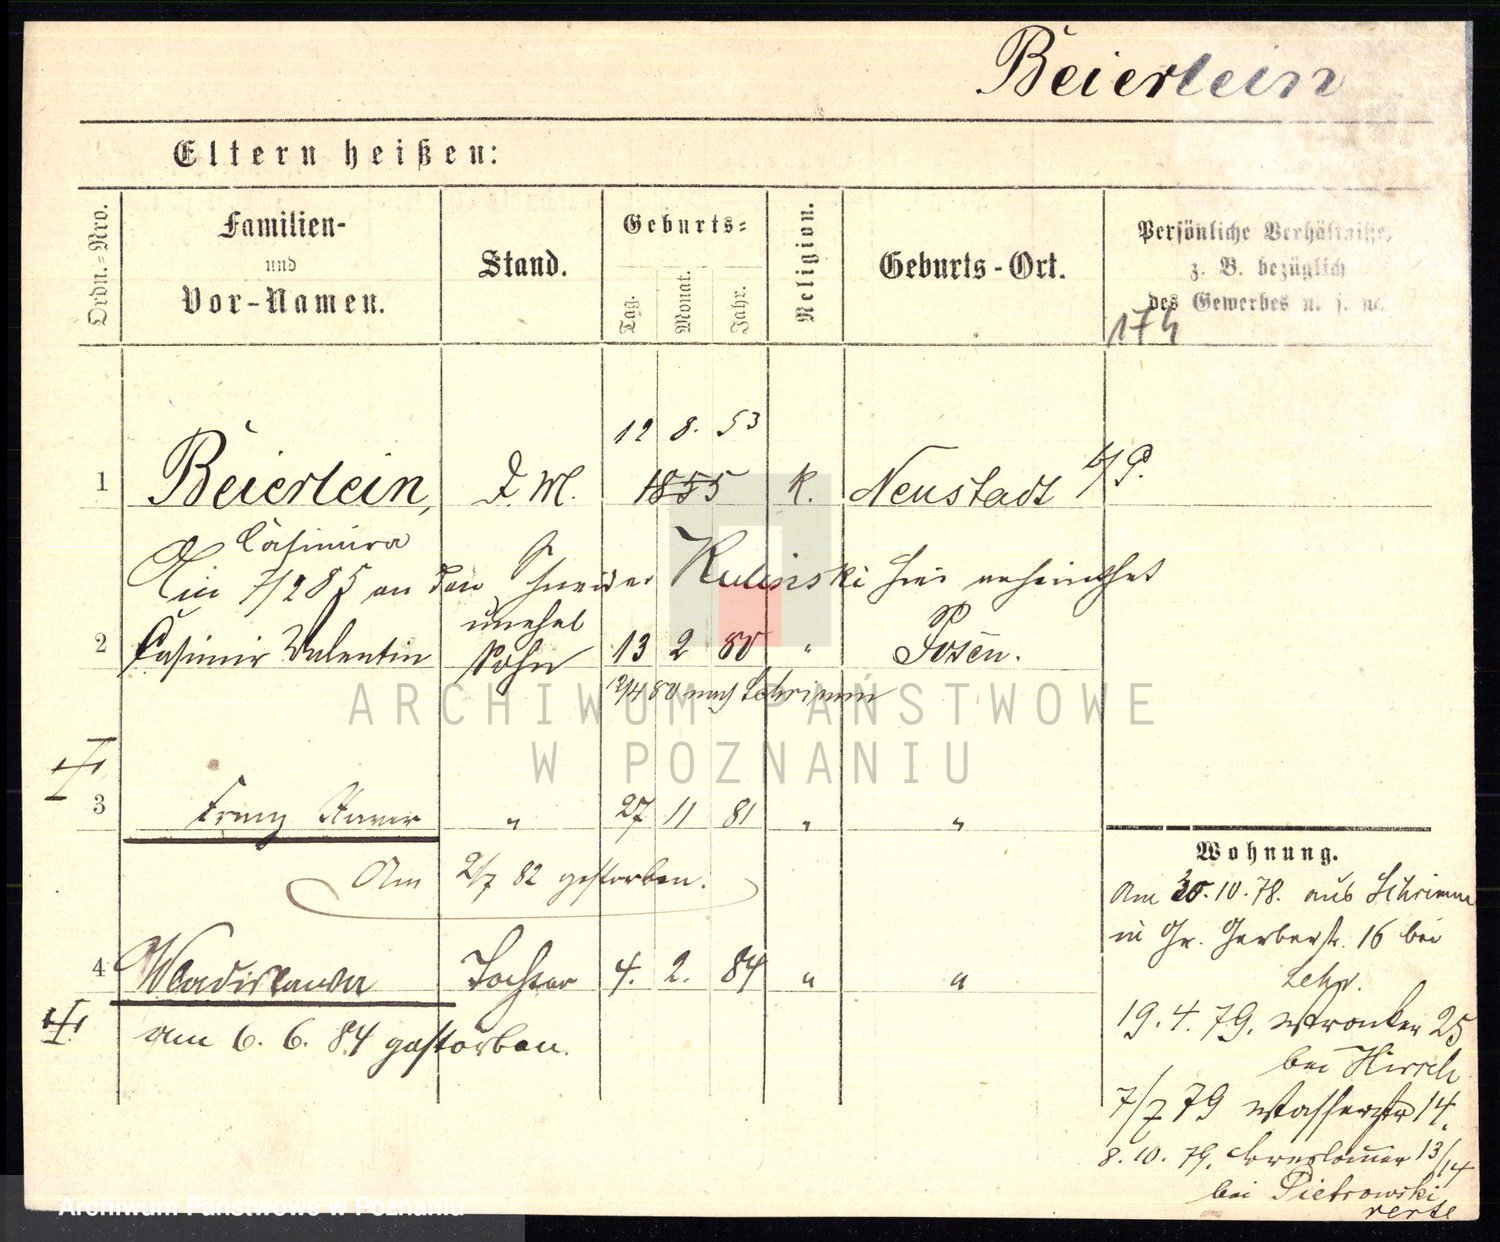 Beierlein
Eltern heißen:
Ordn.-Nro.
Familien-
und
Vor-Namen.
Stand.
Geburts-
Tag.
Monat.
Jahr.
Religion.
Geburts-Ort.
Persönliche Verhältnisse,
z. B. bezüglich
des Gewerbes u. s. w.
174
12 8. 53
1 Beierlein, D. M. 1855 k. Neustadt b/P.
Casimira
7/2 85 an den Kulinski hier verheirathet
unehel
2 Casimir Valentin Sohn 13 2 80 " Posen.
12/4 80 nach Schrimm
ARCHIWUM PAŃSTWOWE
W POZNANIU
3 Franz Xaver " 27 11 81 " "
Am 2/7 82 gestorben.
4 Wladislawa Tochter 4. 2. 84 " "
am 6. 6. 84 gestorben.
Wohnung.
Am 30.10.78. aus Schrimm
in Gr. Gerberstr. 16 bei
19.4.79. Wronker 25
bei Hirsch
7/7 79 Wasserstr 14.
8.10.79. Breslauer 13/14
bei Pietrowski
verte
Archiwum Państwowe w Poznaniu